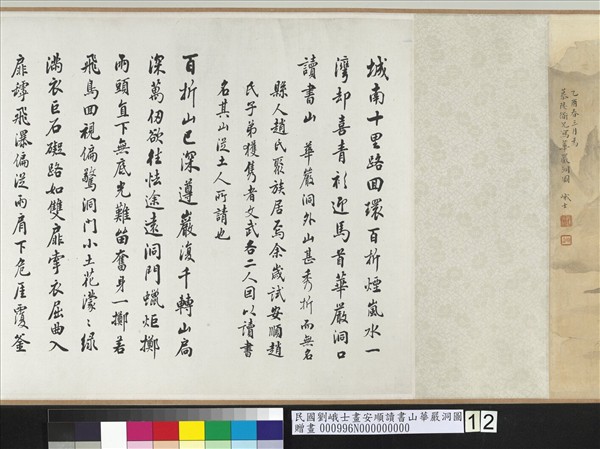 乙酉春三月為
慕陵關兄寫華嚴洞圖
峨士
城南十里路回環百折煙嵐水一
灣却喜青衫迎馬首華嚴洞口
讀書山　華嚴洞外山甚秀折而無名
縣人趙氏聚族居焉余歲試安順趙
氏子弟獲雋者文武各二人因以讀書
名其山從土人所請也
百折山已深遵巖復千轉山扃
深萬仞欲往怯途遠洞門蠟炬擲
兩頭直下無底光難留奮身一擲若
飛鳥回視偏驚洞門小土花濛濛綠
滿衣巨石礙路如雙扉牽衣屈曲入
扉罅飛瀑偏從兩肩下危崖覆釜
民國劉峨士畫安順讀書山華嚴洞圖
贈畫 000996N000000000
12